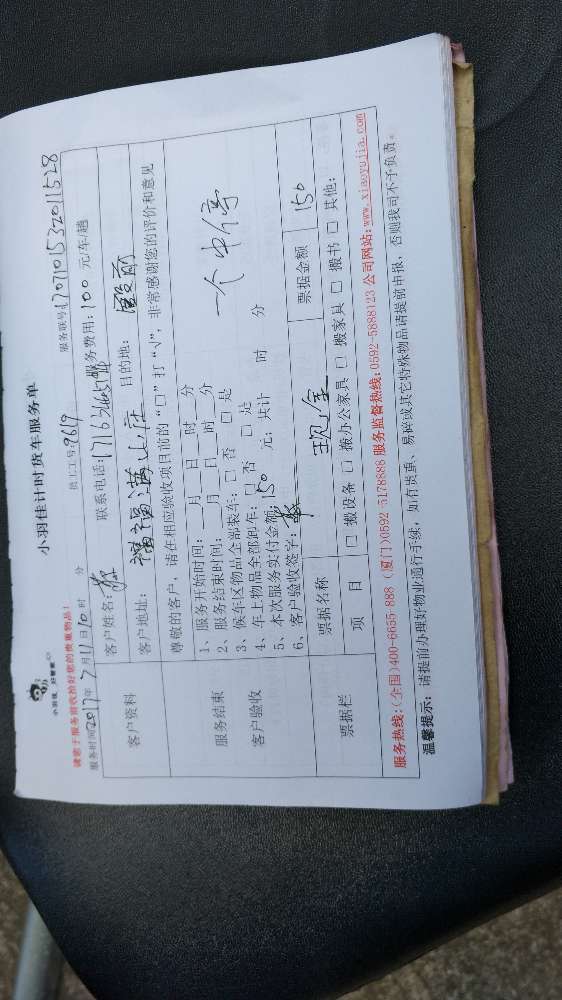 小羽佳计时货车服务单
小羽佳 好管家
请您于服务前收拾好您的贵重物品!
员工工号:9619
服务联号:1707101532011528
服务时间2017年7月11日10时 分
客户资料
客户姓名:
联系电话:
服务费用:100元/车/趟
客户地址: 福满山庄
目的地: 殿前
尊敬的客户,请在相应验收项目前的“□”打“√”,非常感谢您的评价和意见
服务结束
客户验收
1、服务开始时间: 月 日 时 分
2、服务结束时间: 月 日 时 分
一个中停
3、候车区物品全部装车:□否 □是
4、车上物品全部卸车:□否 □是
5、本次服务实付金额:150元;共计 时 分
6、客户验收签字:
票据栏
票据名称 现金
票据金额 150
项 目 □搬设备 □搬办公家具 □搬家具 □搬书 □其他:
服务热线:(全国)400-6655-888 (厦门)0592-5178888 服务监督热线:0592-5888123 公司网站:www.xiaoyujia.com
温馨提示:请提前办理好物业通行手续,如有贵重、易碎或其它特殊物品请提前申报,否则我司不予负责。